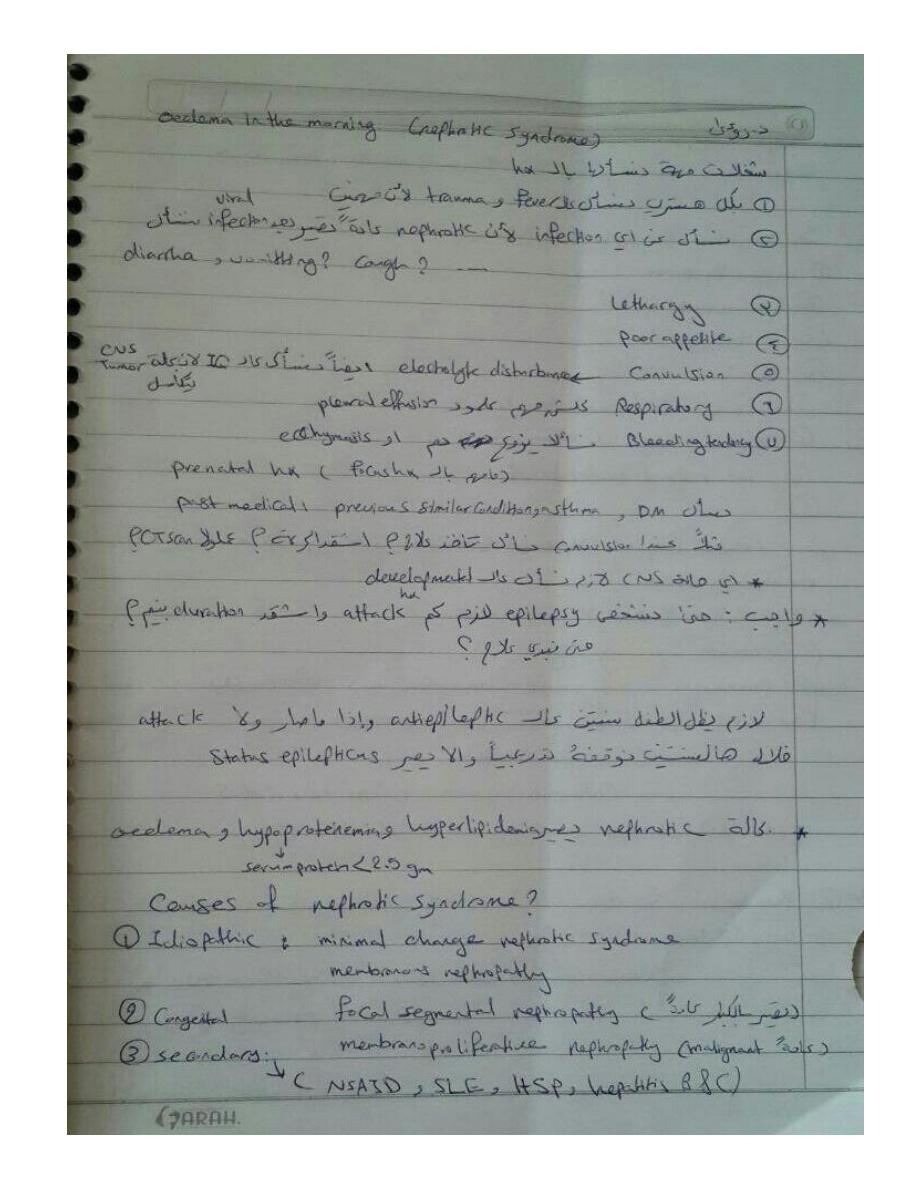 د. رؤى
oedema in the morning (nephrotic syndrome)
شغلات مهمة نسألها بال hx
① بكل هستري نسأل عال fever و trauma لأن
② نسأل عن اي infection لأن nephrotic عادةً تصير بعد viral infection نسأل
diarrhea و vomitting? Cough? ---
③ Lethargy
④ poor appetite
⑤ Convulsion electrolyte disturbance ايضاً نسأل عال IQ لأن CNS Tumor
⑥ Respiratory كلش مهم pleural effusion
⑦ Bleeding tendency دم او ecchymosis
prenatal hx ( focus hx مامهم بال)
past medical: previous similar condition, asthma, DM نسأل
مثلاً عنده convulsion نسأل تاخذ علاج؟ CT scan؟
* اي حالة CNS لازم نسأل عال developmental hx
* واجب: متى نشخص epilepsy لازم كم attack واشقد duration بينهم؟
متى نبدي علاج؟
لازم يظل الطفل سنتين عال antiepileptic وإذا ماصار ولا attack
خلال هالسنتين نوقفه تدريجياً والا يصير Status epilepticus
* بال nephrotic يصير hyperlipidemia و hypoproteinemia و oedema
serum protein < 2.5 gm
Causes of nephrotic syndrome?
① Idiopathic: minimal change nephrotic syndrome
membranous nephropathy
② Congenital focal segmental nephropathy (تصير بالكبار عادةً)
③ secondary: membranoproliferative nephropathy (malignant عادةً)
↳ ( NSAID, SLE, HSP, hepatitis B & C)
FARAH.